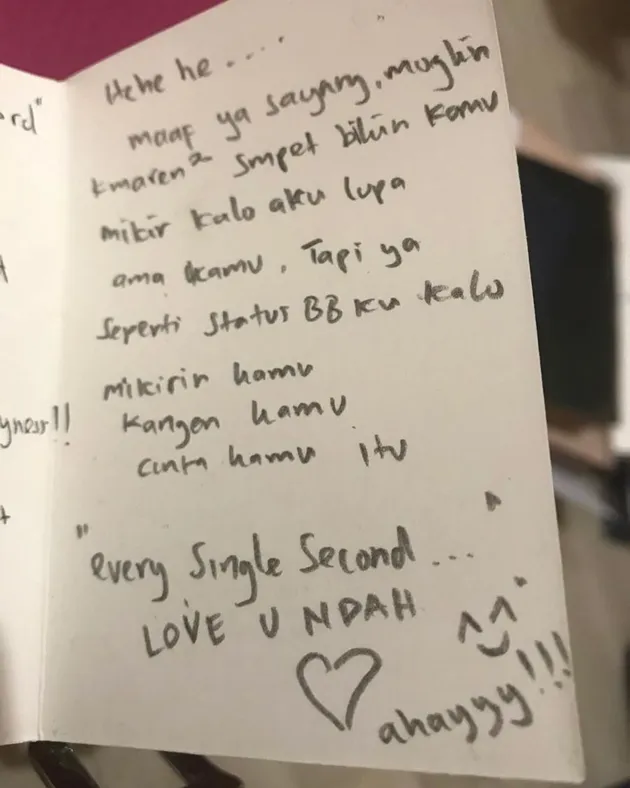 rd"
yness!!
Hehe he ....
maaf ya sayang, mugkin
kmaren² smpet bikin kamu
mikir kalo aku lupa
ama kamu, Tapi ya
Seperti Status BB ku kalo
mikirin kamu
kangen kamu
cinta kamu itu
"every Single Second ... "
LOVE U NDAH
^^
ahayyy!!!